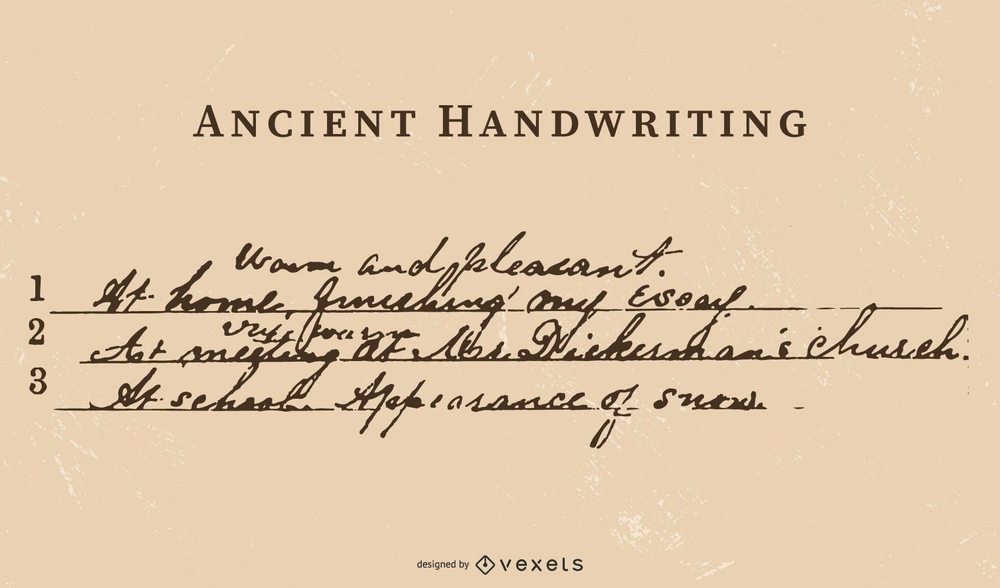 ANCIENT HANDWRITING
Warm and pleasant.
1 At home, finishing my essay.
very warm
2 At meeting at Mr. Dickerman's church.
3 At school. Appearance of snow.
designed by vexels